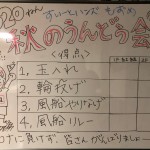 2020 わん
すいーとハンズ もおか
秋のうんどう会
<得点>
1. 玉入れ
2. 輪投げ
3. 風船やりなげ
4. 風船リレー
コロナに負けず、皆さんがんばりましょー